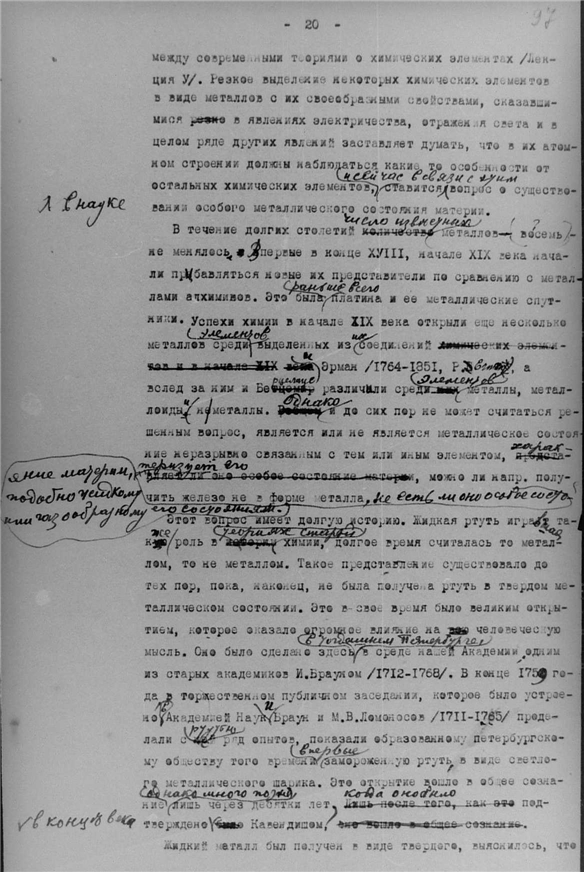 - 20 -
97
между современными теориями о химических элементах /Лек-
ция У/. Резкое выделение некоторых химических элементов
в виде металлов с их своеобразными свойствами, сказавши-
мися резко в явлениях электричества, отражения света и в
целом ряде других явлений заставляет думать, что в их атом-
ном строении должны наблюдаться какие то особенности от
и сейчас в связи с этим
остальных химических элементов, ставится вопрос о существо-
вании особого металлического состояния материи.
в науке
число известных
В течение долгих столетий количество металлов - (восемь ?)
не менялось. Впервые в конце ХУIII, начале XIX века нача-
ли прибавляться новые их представители по сравнению с метал-
раньше всего
лами алхимиков. Это была платина и ее металлические спут-
ники. Успехи химии в начале XIX века открыли еще несколько
элементов
металлов среди выделенных из соединений химических элемен-
тов и в начале XIX века Эрман /1764-1851, Р. а
элементов
вслед за ним и Берцелиус различали среди них металлы, метал-
однако
лоиды и неметаллы. и до сих пор не может считаться ре-
шенным вопрос, является или не является металлическое состоя-
ние неразрывно связанным с тем или иным элементом, харак-
теризует его
вляет ли оно особое состояние материи, можно ли напр. полу-
чить железо не в форме металла, не есть ли оно особое состо-
яние материи,
подобно жидкому
или газообразному его состояниям.)
Этот вопрос имеет долгую историю. Жидкая ртуть играет та-
теориях старой
кую же роль в истории химии, долгое время считалась то метал-
лом, то не металлом. Такое представление существовало до
тех пор, пока, наконец, не была получена ртуть в твердом ме-
таллическом состоянии. Это в свое время было великим откры-
тием, которое оказало огромное влияние на всю человеческую
в тогдашнем Петербурге
мысль. Оно было сделано здесь в среде нашей Академии одним
из старых академиков И.Брауном /1712-1768/. В конце 1759 го-
да в торжественном публичном заседании, которое было устрое-
но Академией Наук И Браун и М.В.Ломоносов /1711-1765/ проде-
ртутью
лали с ней ряд опытов, показали образованному петербургско-
впервые
му обществу того времени замороженную ртуть в виде светло-
го металлического шарика. Это открытие вошло в общее созна-
однако много позже
когда оно было
ние лишь через десятки лет, лишь после того, как это под-
в конце века
тверждено было Кавендишом, оно вошло в общее сознание.
Жидкий металл был получен в виде твердого, выяснилось, что